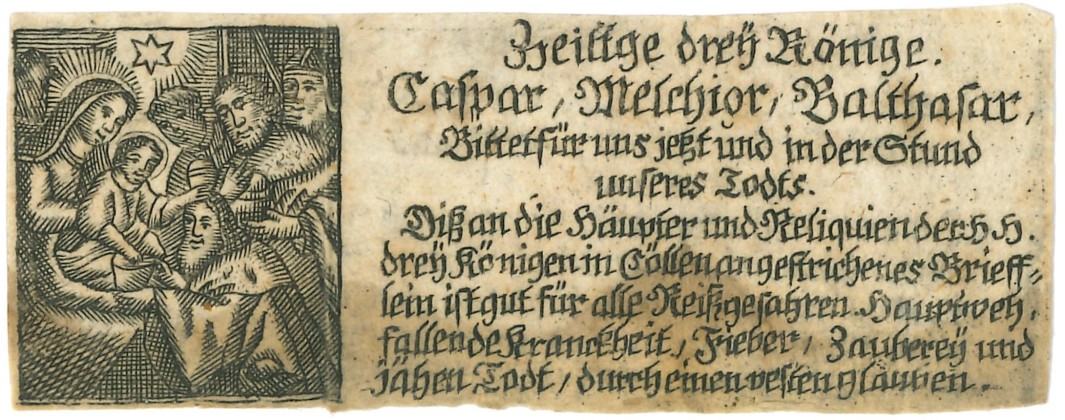 Heilige dreÿ Könige.
Caspar, Melchior, Balthasar,
Bittet für uns jetzt und in der Stund
unseres Todts.
Diß an die Häupter und Reliquien der H H.
dreÿ Königen in Cöllen angestrichenes Brieff-
lein ist gut für alle Reißgefahren. Hauptweh,
fallende Kranckheit, Fieber, Zaubereÿ und
jähen Todt, durch einen vesten glauben.